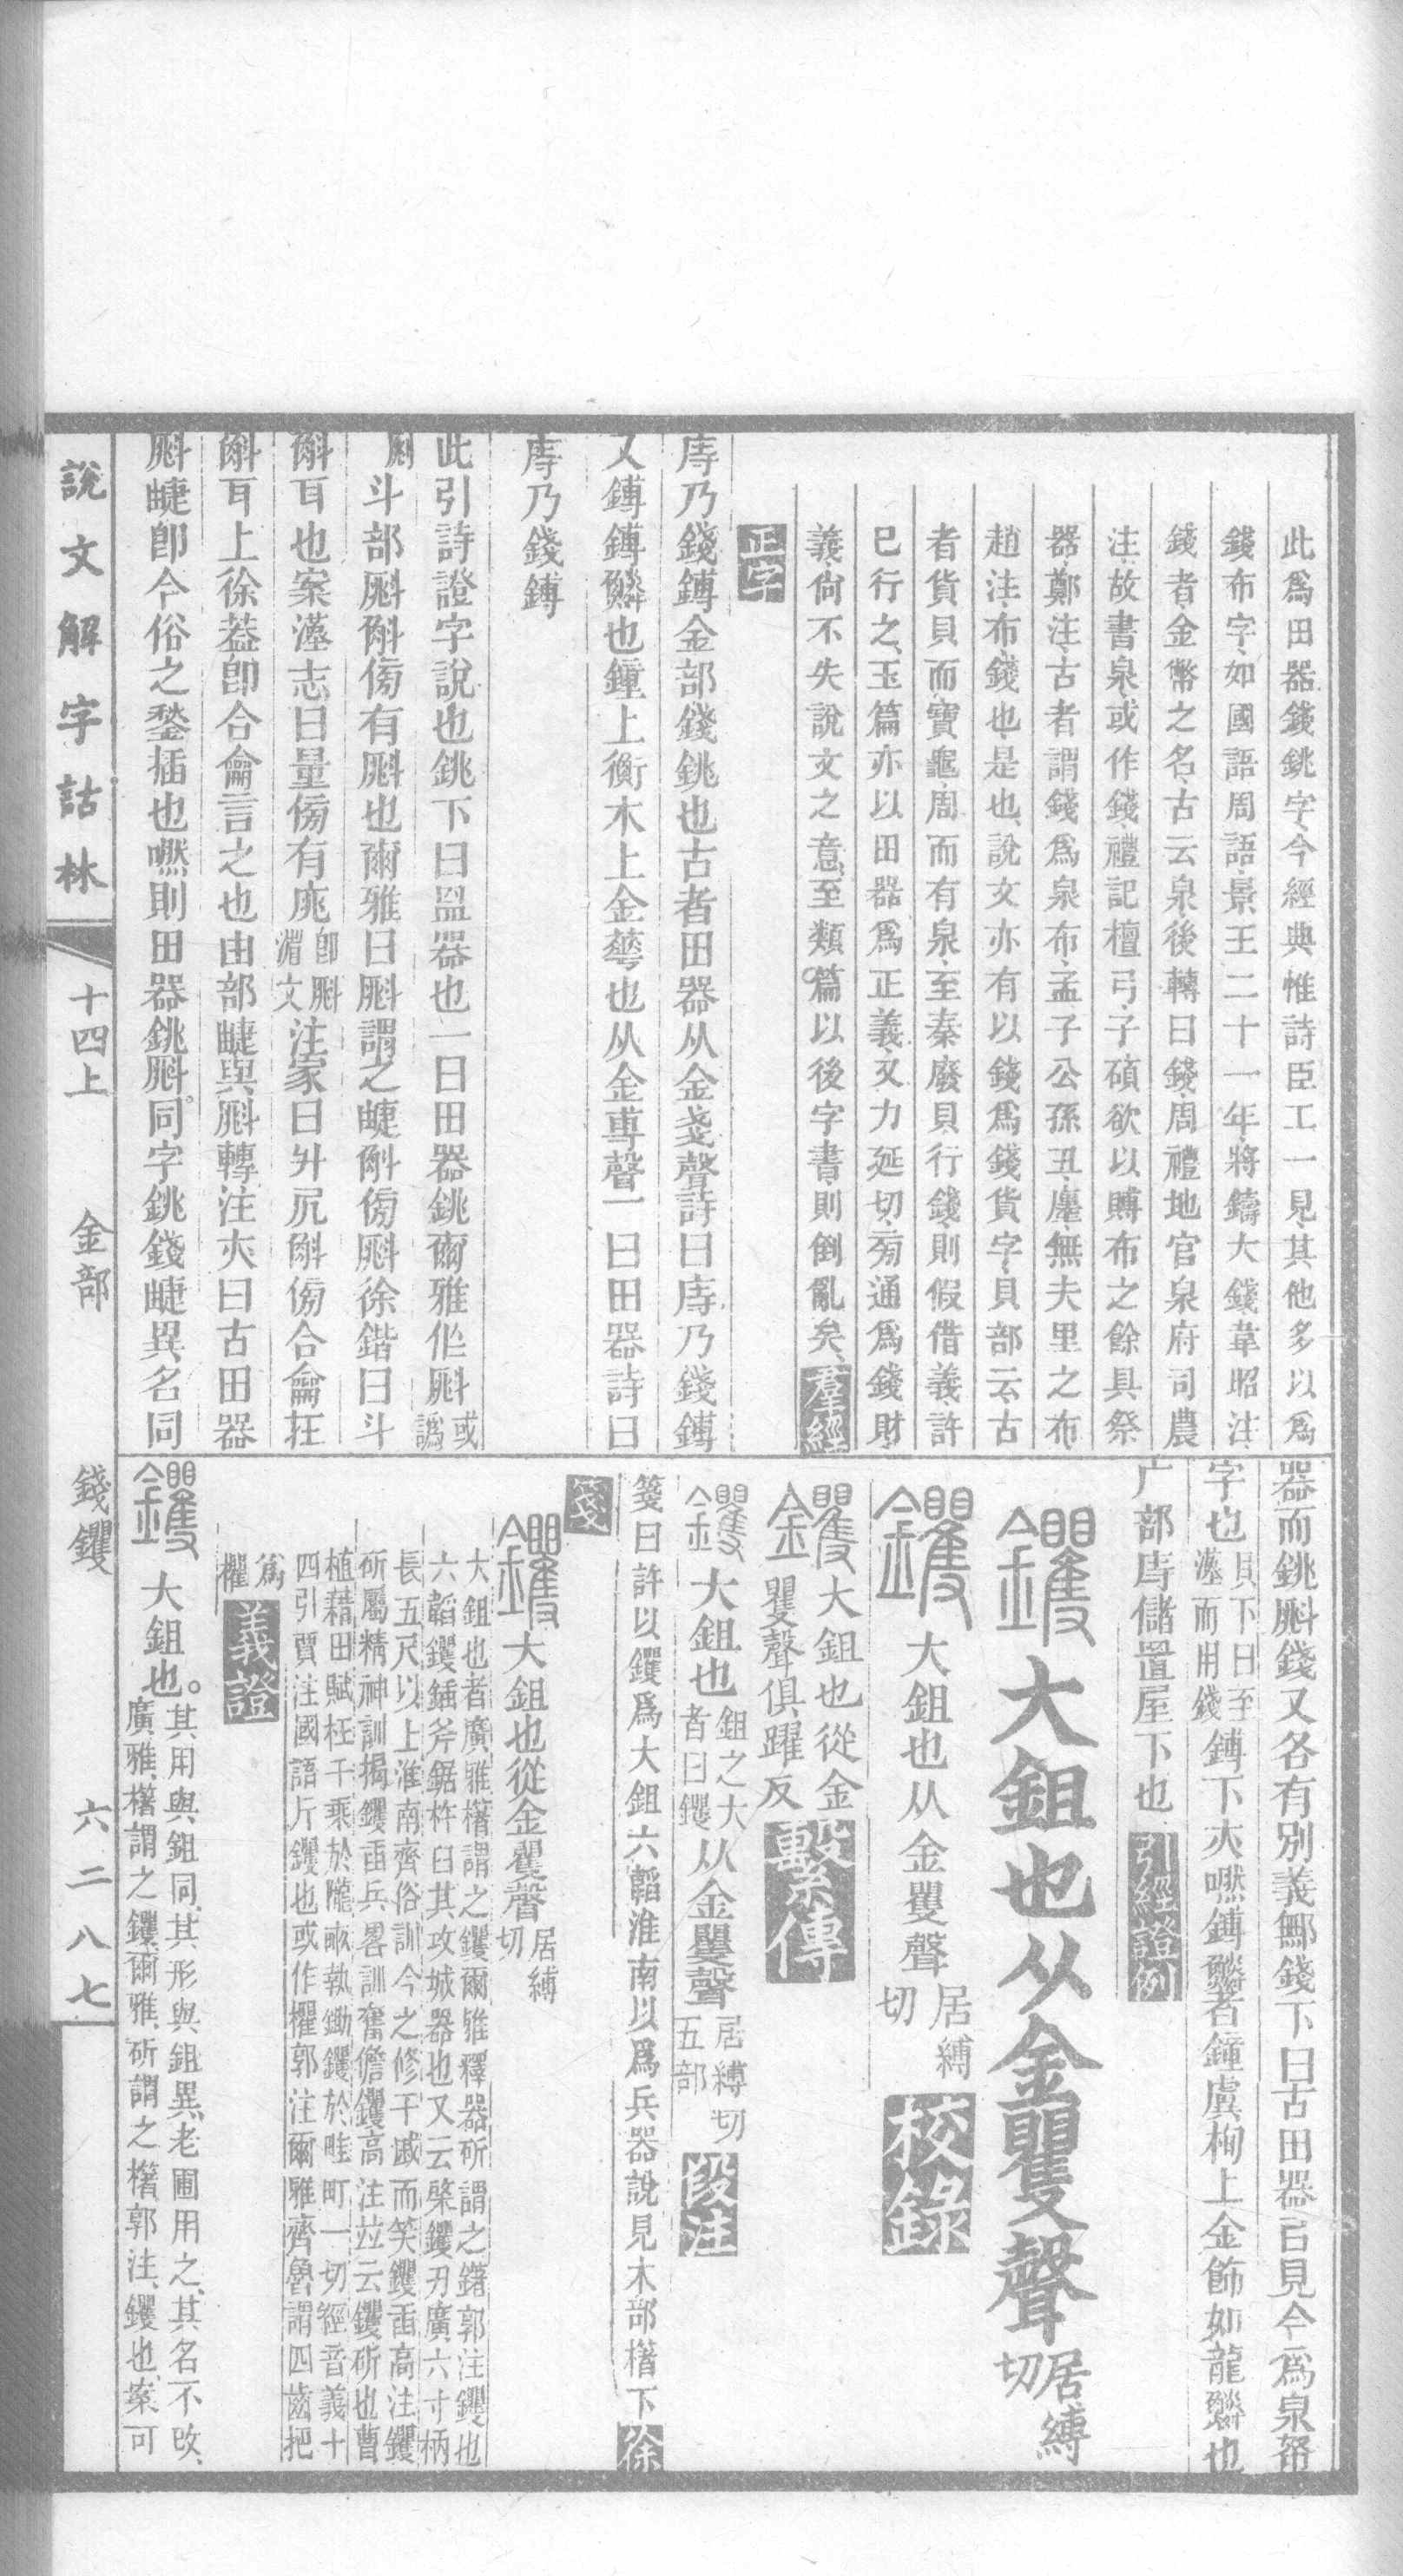 此爲田器錢銚字今經典惟詩臣工一見其他多以爲
錢布字如國語周語景王二十一年將鑄大錢韋昭注
錢者金幣之名古云泉後轉曰錢周禮地官泉府司農
注故書泉或作錢禮記檀弓子碩欲以賻布之餘具祭
器鄭注古者謂錢爲泉布孟子公孫丑廛無夫里之布
趙注布錢也是也說文亦有以錢爲錢貨字貝部云古
者貨貝而寶龜周而有泉至秦廢貝行錢則假借義許
已行之玉篇亦以田器爲正義又力延切旁通爲錢財
義尙不失說文之意至類篇以後字書則倒亂矣羣經
正字
庤乃錢鎛金部錢銚也古者田器从金戔聲詩曰庤乃錢鎛
又鎛鎛鱗也鐘上衡木上金華也从金尃聲一曰田器詩曰
庤乃錢鎛
此引詩證字說也銚下曰昷器也一曰田器銚爾雅作㪶或譌
斗部㪶斛㫄有㪶也爾雅曰㪶謂之疀斛㫄㪶徐鍇曰斗
斛耳也案漢志曰量㫄有庣注家曰升凥斛㫄合龠在
斛耳上徐蓋卽合龠言之也由部疀與㪶轉注亦曰古田器
㪶疀卽今俗之鍫插也嘫則田器銚㪶同字銚錢疀異名同
器而銚㪶錢又各有別義鄦錢下曰古田器㠯見今爲泉帑
字也貝下曰至秦而用錢鎛下亦嘫鎛鱗者鐘虡栒上金飾如龍鱗也
广部庤儲置屋下也引經證例
钁大鉏也从金矍聲居縛切
钁大鉏也从金矍聲居縛切校錄
钁大鉏也從金矍聲俱躍反繫傳
钁大鉏也鉏之大者曰钁从金矍聲居縛切五部段注
箋曰許以钁爲大鉏六韜淮南以爲兵器說見木部櫡下徐
箋
钁大鉏也從金矍聲居縛切
大鉏也者廣雅櫡謂之钁爾雅釋器斫謂之鐯郭注钁也
六韜钁鍤斧鋸杵臼其攻城器也又云棨钁刃廣六寸柄
長五尺以上淮南齊俗訓今之修干戚而笑钁臿高注钁
斫屬精神訓揭钁臿兵畧訓奮儋钁高注竝云钁斫也曹
植藉田賦枉千乘於隴畝執鋤钁於畦町一切經音義十
四引賈注國語斤钁也或作欔郭注爾雅齊魯謂四齒把
爲欔義證
钁大鉏也。其用與鉏同其形與鉏異老圃用之其名不改
廣雅櫡謂之钁爾雅斫謂之櫡郭注钁也案可
說文解字詁林
十四上 金部 錢钁 六二八七